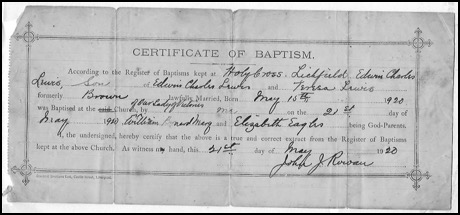 CERTIFICATE OF BAPTISM.
According to the Register of Baptisms kept at Holy Cross. Lichfield, Edwin Charles
Lewis Son of Edwin Charles Lewis and Teresa Lewis
formerly Brown lawfully Married, Born May 15th 1920
of Our Lady of
was Baptised at the said Church, by me on the 21st day of
May 1920 William and Elizabeth Eagles being God-Parents.
I, the undersigned, hereby certify that the above is a true and correct extract from the Register of Baptisms
kept at the above Church. As witness my hand, this 21st day of May 1920
John J. Rowan